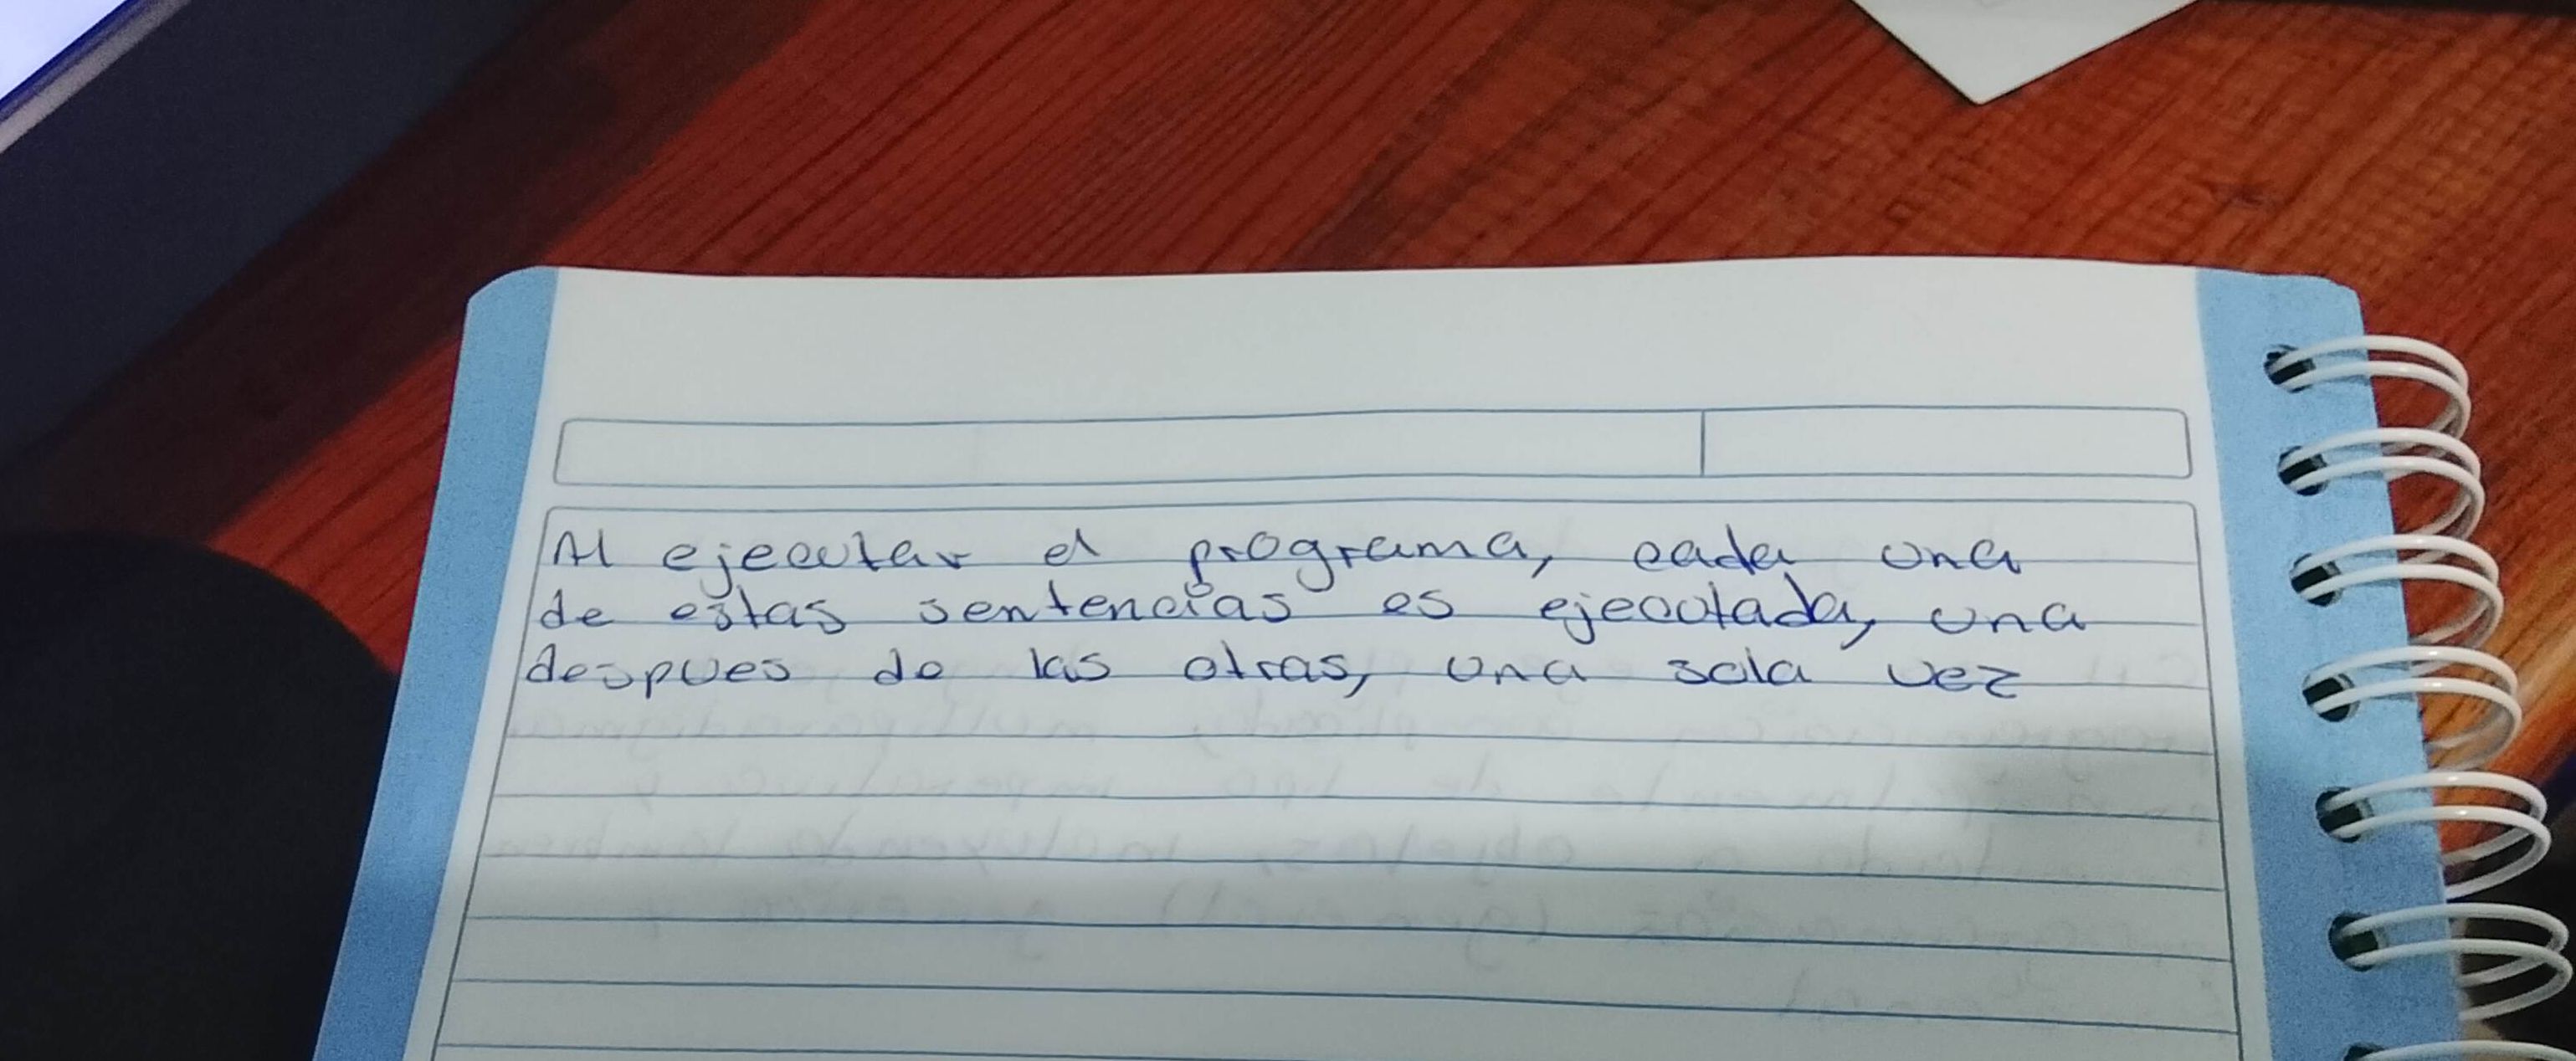 Al ejecutar el programa, cada una
de estas sentencias es ejecutada, una
despues de las otras, una sola vez